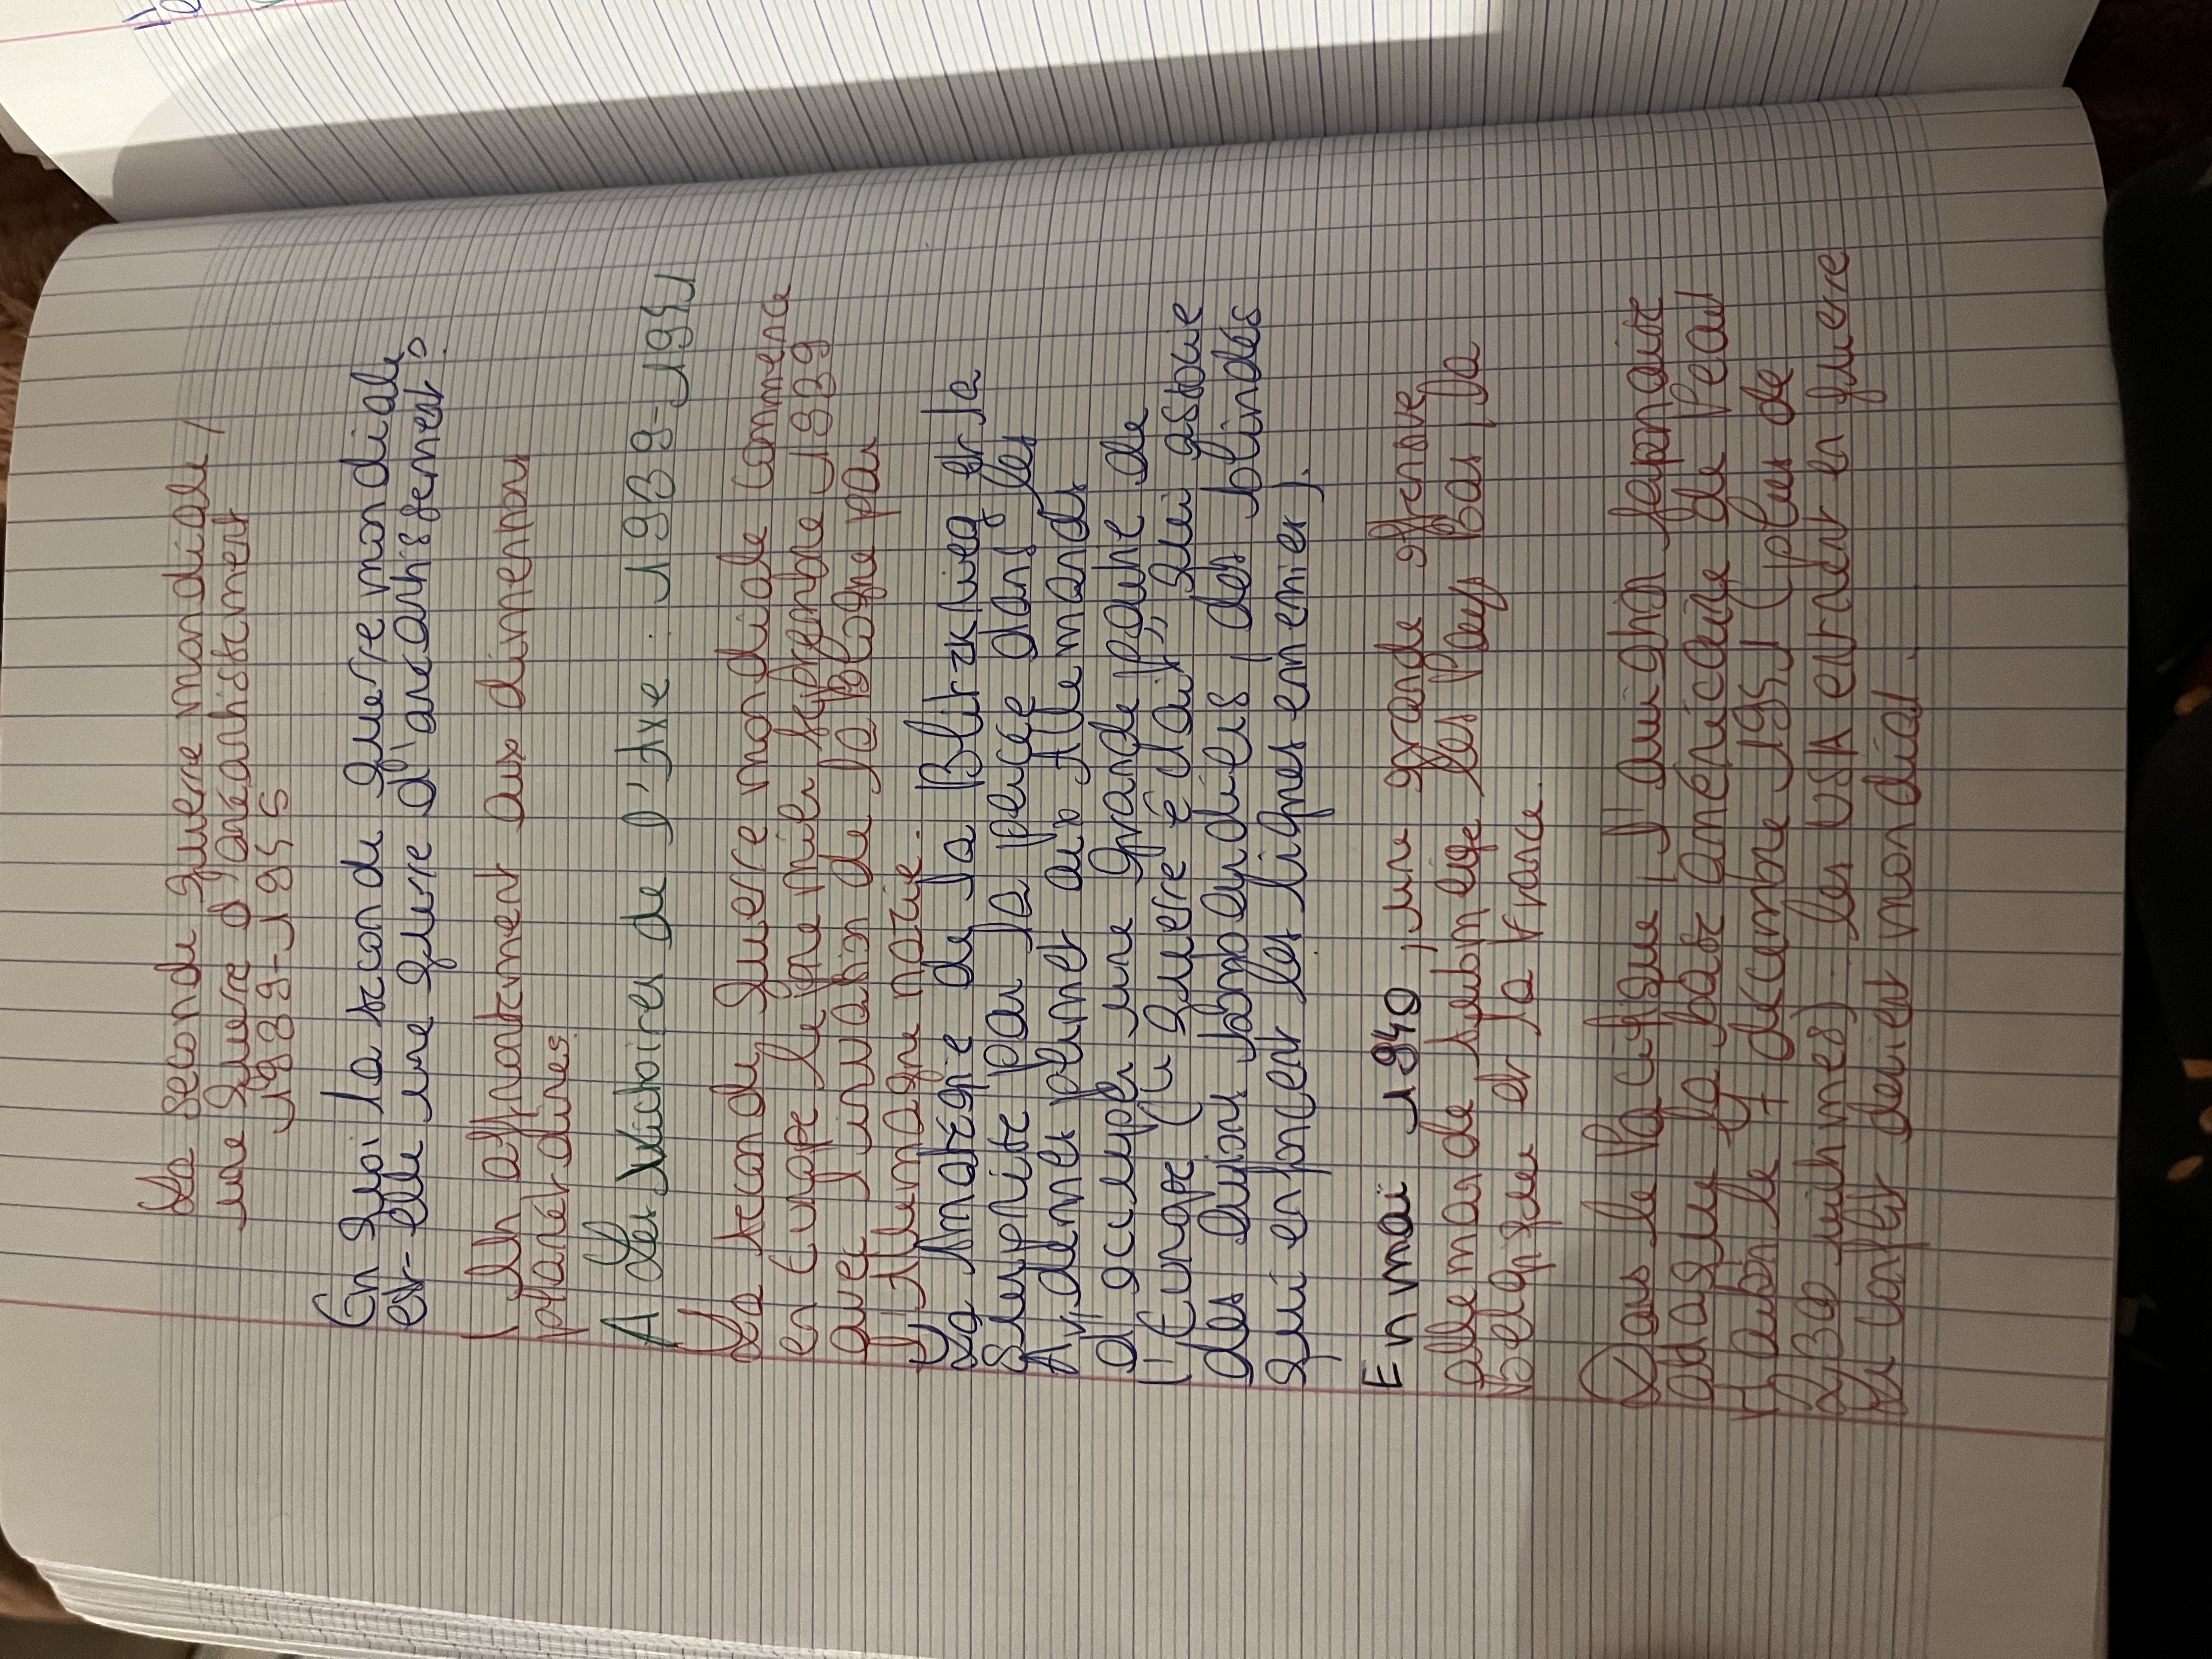 La seconde guerre mondiale /
une guerre d'anéantissement
1939-1945
En quoi la seconde guerre mondiale
est-elle une guerre d'anéantissement ?
I Un affrontement aux dimension
planétaires
A Les victoires de l'Axe : 1939-1941
La seconde guerre mondiale commence
en Europe le 1er septembre 1939
avec l'invasion de la Pologne par
l'Allemagne nazie.
La stratégie de la Blitzkrieg et la
surprise par la percée dans les
Ardennes permet aux Allemands
d'occuper une grande partie de
l'Europe (la guerre éclair", qui associe
des avions bombardiers, des blindés
qui enfoncent les lignes ennemies).
En mai 1940, une grande offensive
allemande submerge les Pays bas, la
Belgique et la France.
Dans le Pacifique, l'aviation japonaise
attaque la base américaine de Pearl
Harbor le 7 décembre 1941 (plus de
2430 victimes). Les USA entrent en guerre
Le conflit devient mondial.